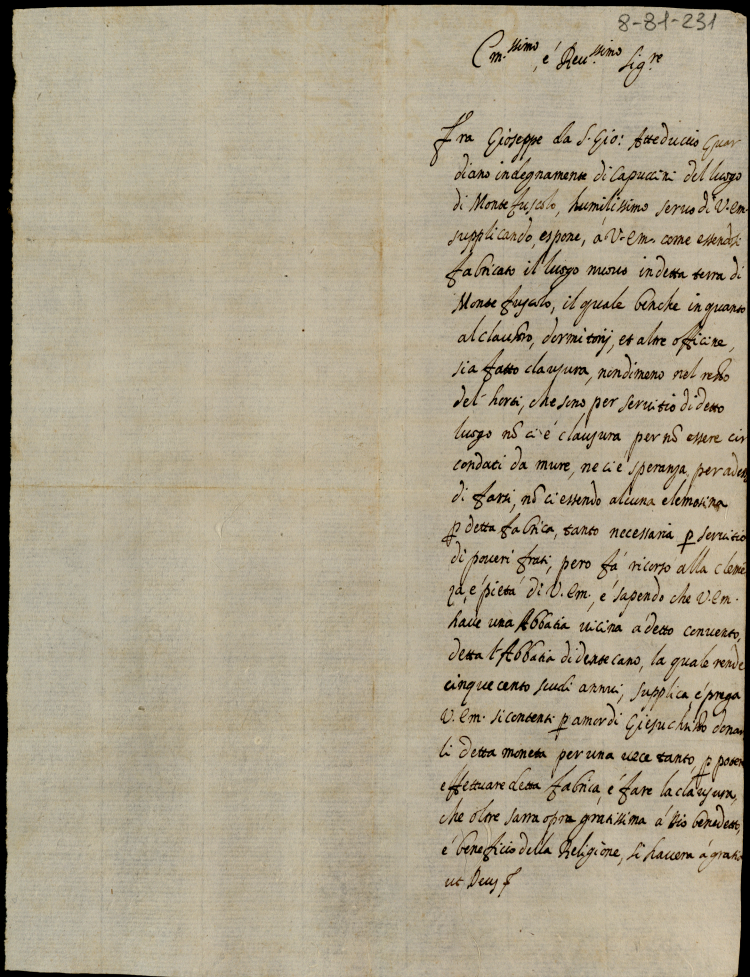 8-81-231
Em.ssimo, é Reu.ssimo Sig.re
Fra Gioseppe da S. Gio: Atteduccio Guar
diano indegnamente di Capuccini del luogo
di Monte fuscolo, humilissimo seruo di V. Em.
supplicando, espone, á V. Em. come essendosi
fabricato il luogo nuouo in detta terra di
Monte fuscolo, il quale benche in quanto
al claustro, dormitorij, et altre officine,
sia fatto clausura, nondimeno nel resto
del horti, che sono per seruitio di detto
luogo nõ ci é clausura per nõ essere cir
condati da mure, ne ci é speranza per adesso
di farsi, nõ ci essendo alcuna elemosina
ꝑ detta fabrica, tanto necessaria ꝑ seruitio
di poueri frati, pero fá ricorso alla cleme
za, é pietá di V. Em., é sapendo che V. Em.
haue una Abbatia uicina a detto conuento,
detta l'Abbatia di dentecano, la quale rende
cinquecento scudi annui, supplica, é prega
V. Em. si contenti ꝑ amor di Giesu christo donar
li detta moneta per una uice tanto, ꝑ poter
effettuare detta fabrica, é fare la clausura,
che oltre sarra opra gratissima á Dio benedetto,
é beneficio della Religione, si hauera á gratia
ut Deus